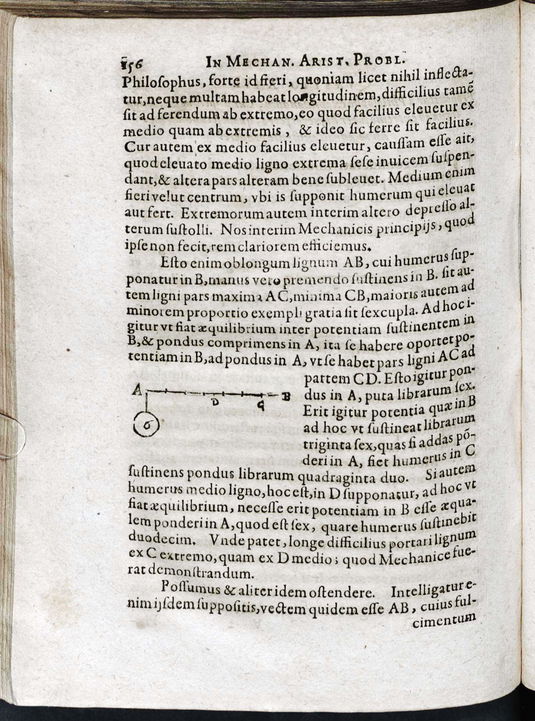 156 IN MECHAN. ARIST. PROBL.
Philosophus, forte id fieri, quoniam licet nihil inflecta-
tur, neque multam habeat longitudinem, difficilius tamē
sit ad ferendum ab extremo, eo quod facilius eleuetur ex
medio quam ab extremis, & ideo sic ferre sit facilius.
Cur autem ex medio facilius eleuetur, caussam esse ait,
quod eleuato medio ligno extrema sese inuicem suspen-
dant, & altera pars alteram bene subleuet. Medium enim
fieri velut centrum, vbi is supponit humerum qui eleuat
aut fert. Extremorum autem interim altero depresso al-
terum sustolli. Nos interim Mechanicis principijs, quod
ipse non fecit, rem clariorem efficiemus.
Esto enim oblongum lignum AB, cui humerus sup-
ponatur in B, manus vero premendo sustinens in B. sit au-
tem ligni pars maxima AC, minima CB, maioris autem ad
minorem proportio exempli gratia sit sexcupla. Ad hoc i-
gitur vt fiat æquilibrium inter potentiam sustinentem in
B, & pondus comprimens in A, ita se habere oportet po-
tentiam in B, ad pondus in A, vt se habet pars ligni AC ad
partem CD. Esto igitur pon-
dus in A, puta librarum sex.
Erit igitur potentia quæ in B
ad hoc vt sustineat librarum
triginta sex, quas si addas pō-
deri in A, fiet humerus in C
A D C B
6
sustinens pondus librarum quadraginta duo. Si autem
humerus medio ligno, hoc est, in D supponatur, ad hoc vt
fiat æquilibrium, necesse erit potentiam in B esse æqua-
lem ponderi in A, quod est sex, quare humerus sustinebit
duodecim. Vnde patet, longe difficilius portari lignum
ex C extremo, quam ex D medio; quod Mechanice fue-
rat demonstrandum.
Possumus & aliter idem ostendere. Intelligatur e-
nim ijsdem suppositis, vectem quidem esse AB, cuius ful-
cimentum